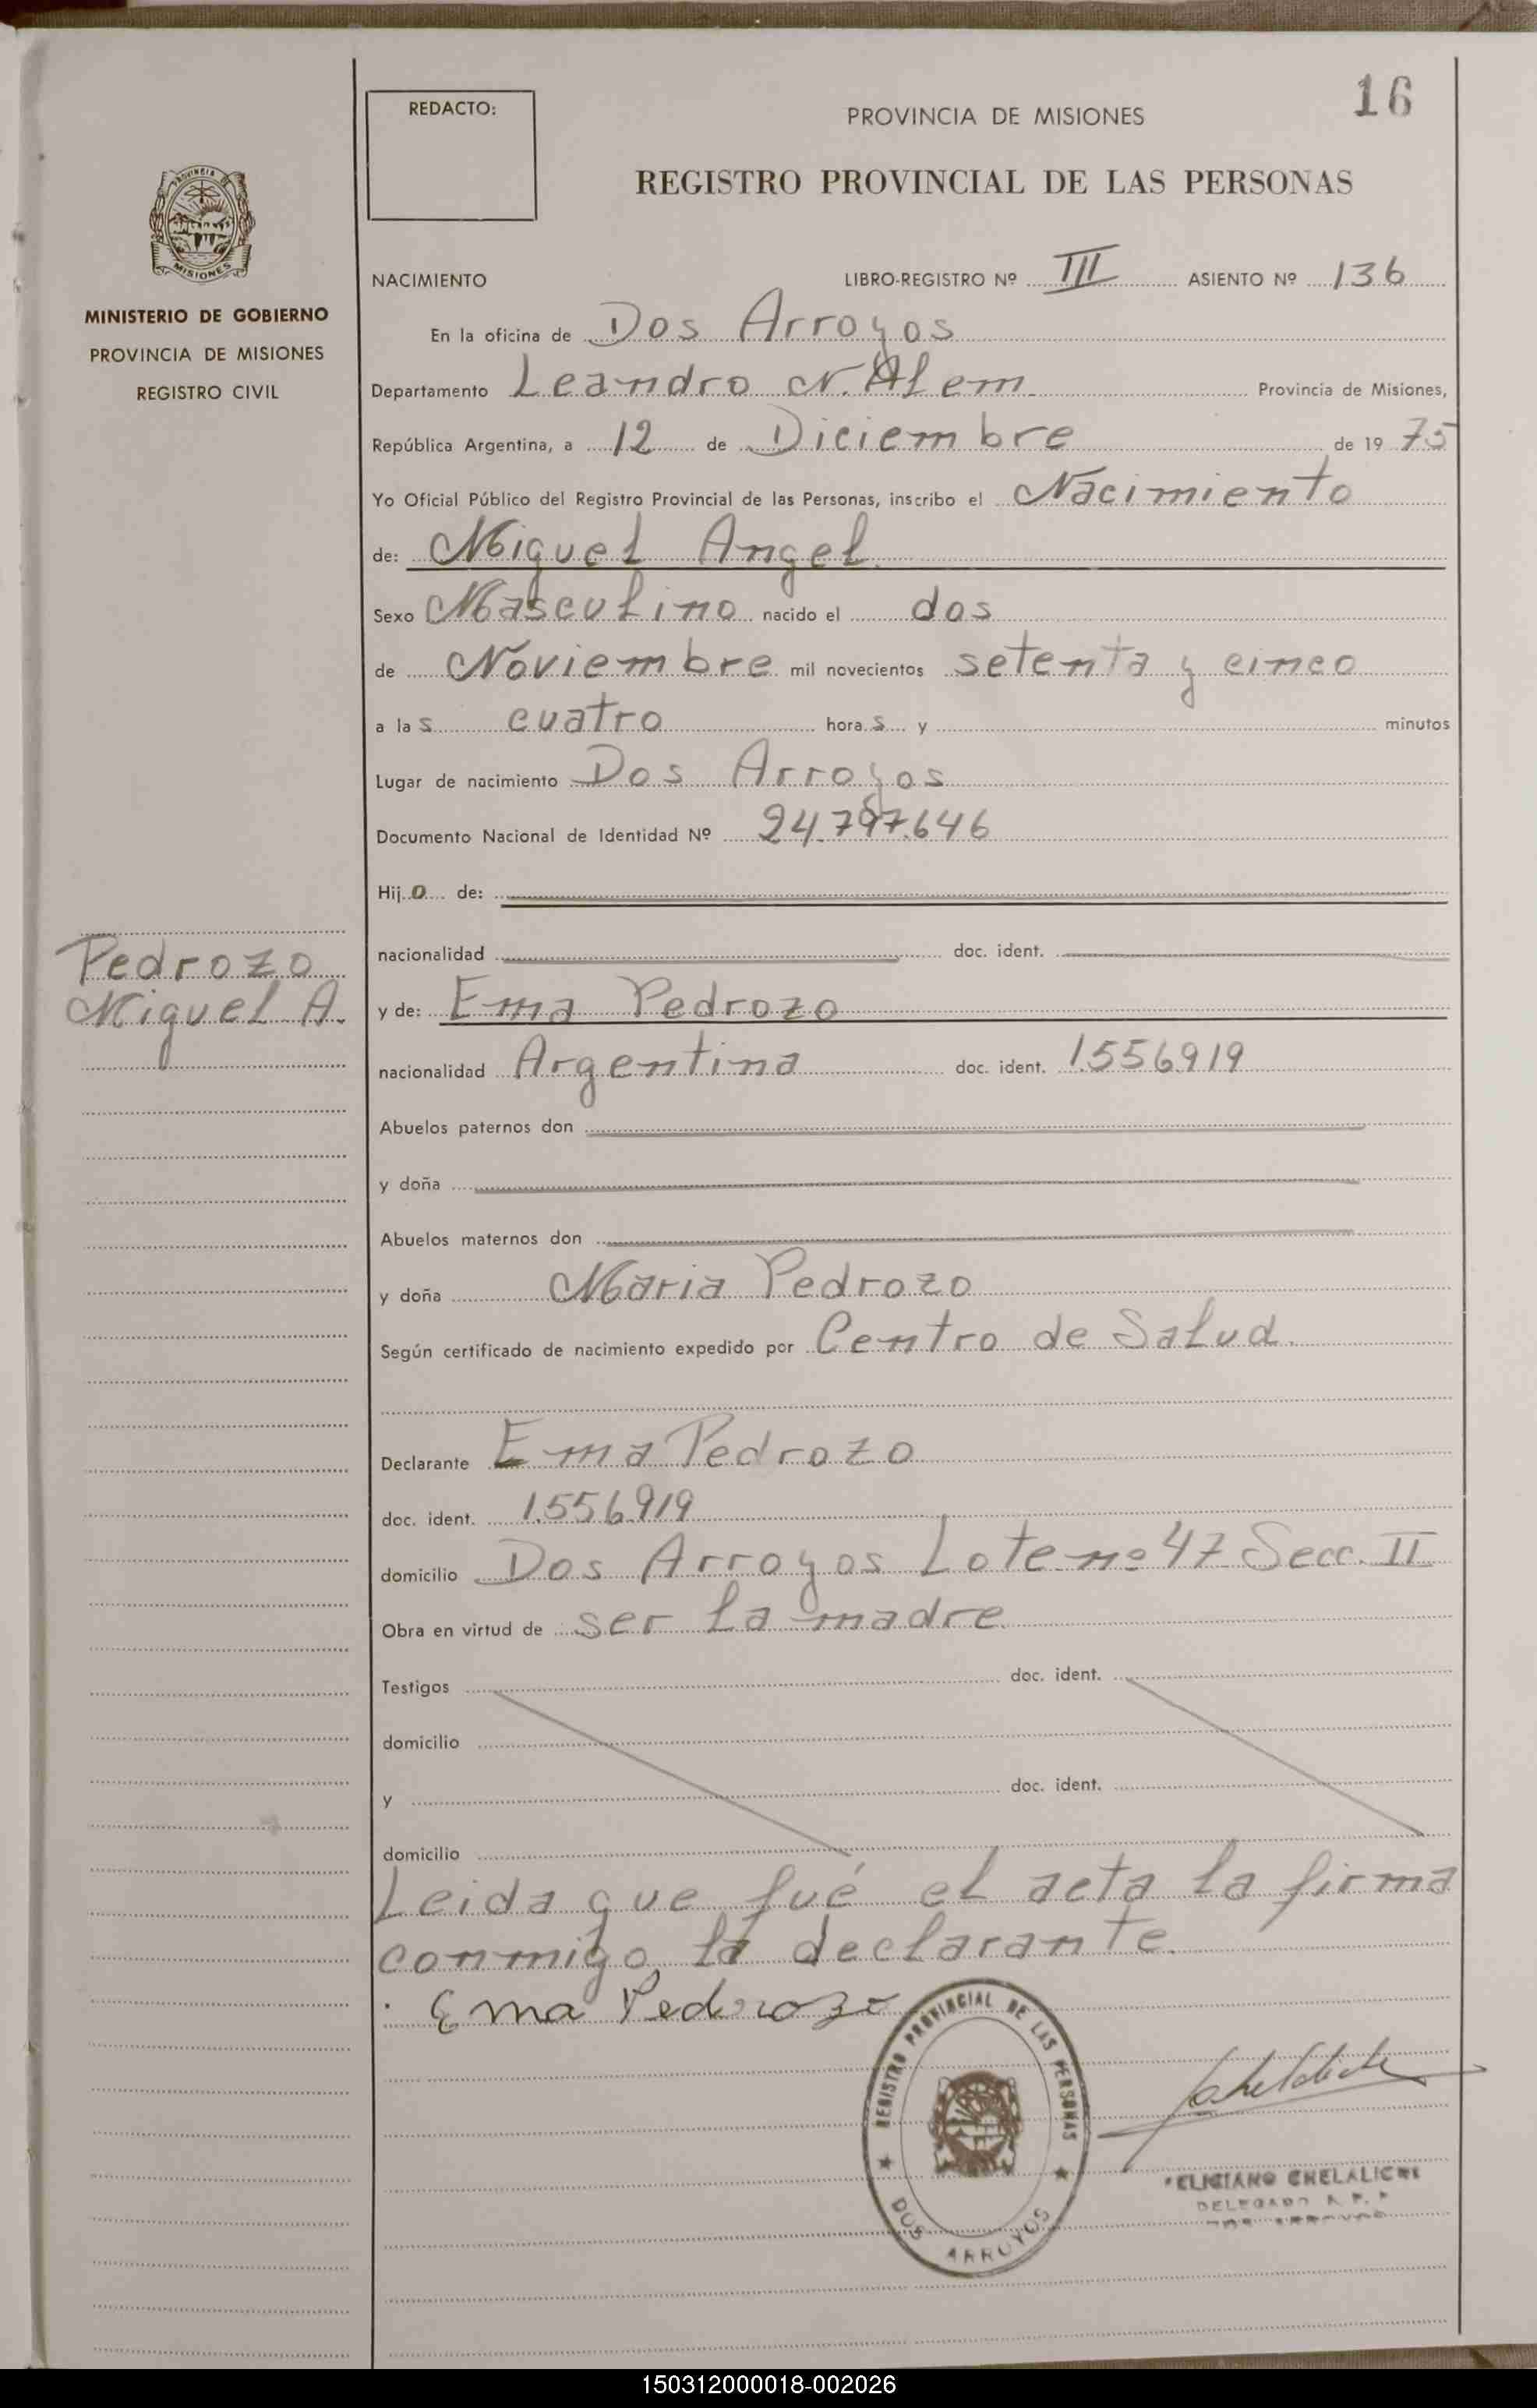 REDACTO:
PROVINCIA DE MISIONES
16
REGISTRO PROVINCIAL DE LAS PERSONAS
MISIONES
MINISTERIO DE GOBIERNO
PROVINCIA DE MISIONES
REGISTRO CIVIL
NACIMIENTO LIBRO-REGISTRO Nº III ASIENTO Nº 136
En la oficina de Dos Arroyos
Departamento Leandro N. Alem Provincia de Misiones,
República Argentina, a 12 de Diciembre de 1975
Yo Oficial Público del Registro Provincial de las Personas, inscribo el Nacimiento
de: Miguel Angel
Sexo Masculino nacido el dos
de Noviembre mil novecientos setenta y cinco
a las cuatro horas y minutos
Lugar de nacimiento Dos Arroyos
Documento Nacional de Identidad Nº
Hijo de:
nacionalidad doc. ident.
Pedrozo
Miguel A.
y de: Ema Pedrozo
nacionalidad Argentina doc. ident. 1.556919
Abuelos paternos don
y doña
Abuelos maternos don
y doña Maria Pedrozo
Según certificado de nacimiento expedido por Centro de Salud.
Declarante Ema Pedrozo
doc. ident. 1.556.919
domicilio Dos Arroyos Lote nº 47 Secc. II
Obra en virtud de ser la madre
Testigos doc. ident.
domicilio
y doc. ident.
domicilio
Leida que fué el acta la firma
conmigo la declarante.
Ema Pedrozo
REGISTRO PROVINCIAL DE LAS PERSONAS
DOS ARROYOS
CHELALICHE
DELEGADO R. P. P.
DOS ARROYOS
150312000018-002026